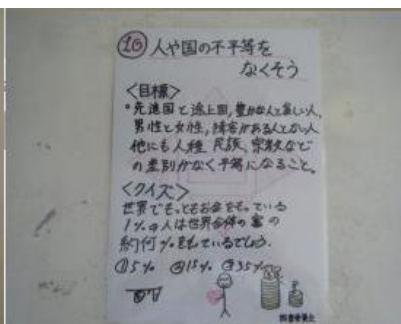 ⑩ 人や国の不平等を
なくそう
<目標>
・先進国と途上国,豊かな人と貧しい人、
男性と女性,障害がある人とない人
他にも人種 民族、宗教など
の差別がなく平等になること。
<クイズ>
世界でもっともお金をもっている
1%の人は世界全体の富の
約何%をもっているでしょう。
①5% ②15% ③35%
図書委員会